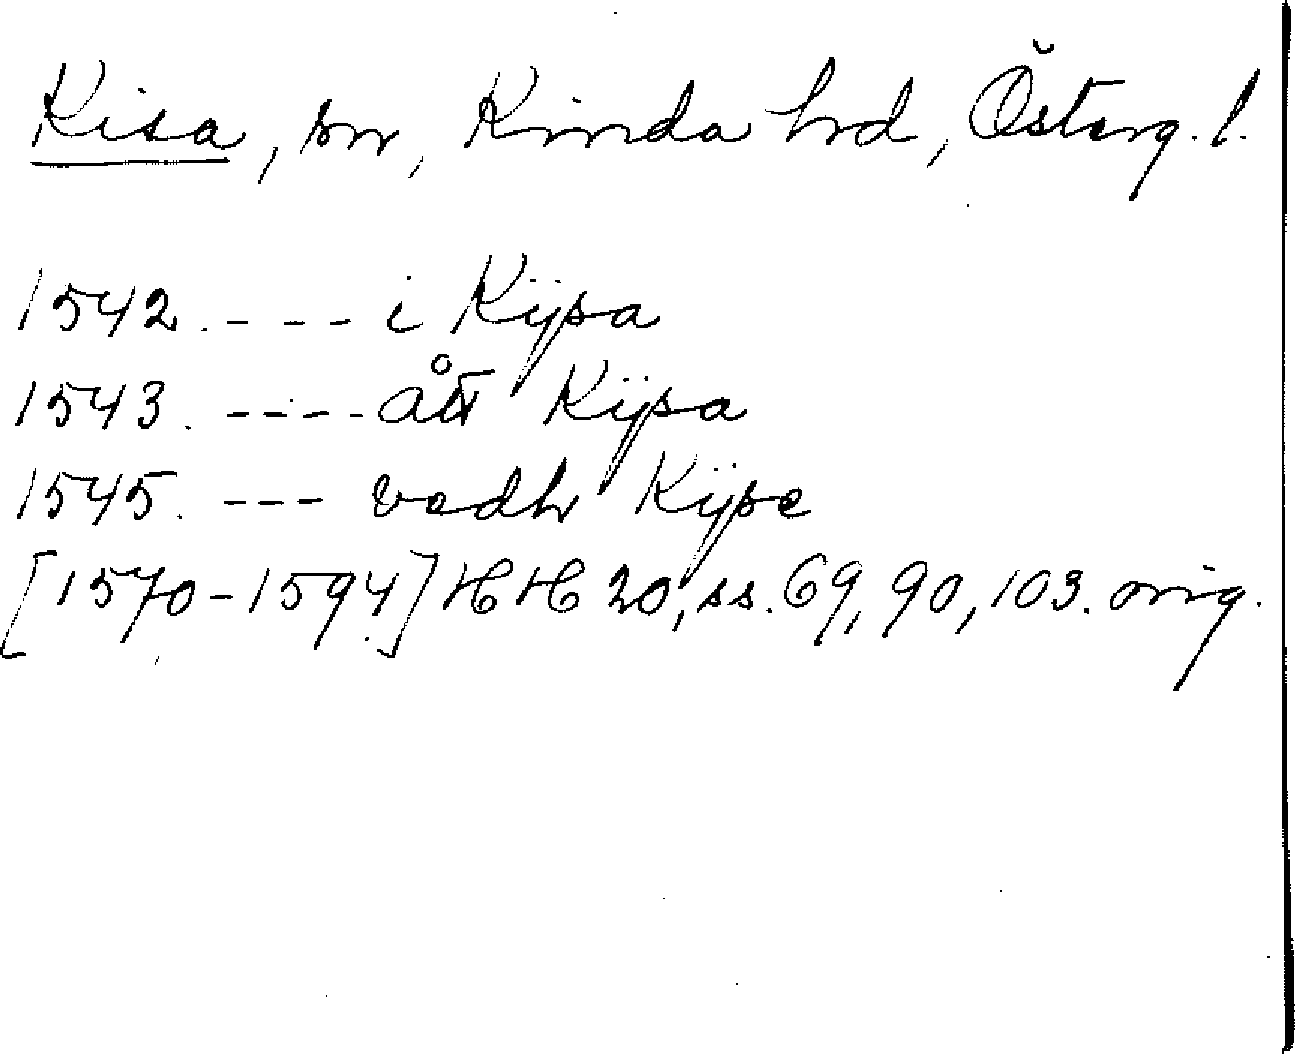 Kisa, sn, Kinda hd, Österg. l.
1542. - - - i Kijsa
1543. - - - -ått Kijsa
1545. - - - vedh Kijse
[1570-1594] HH 20, ss. 69, 90, 103. orig.